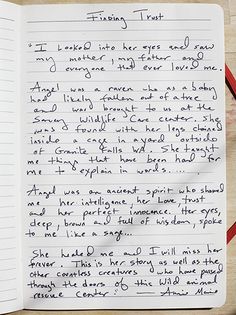 Finding Trust
"I looked into her eyes and saw
my mother, my father, and
everyone that ever loved me.
Angel was a raven who as a baby
had likely fallen out of a tree
and was brought to us at the
Sarvey Wildlife Care Center. She
was found with her legs chained
inside a cage in a yard outside
of Granite Falls WA. She taught
me things that have been hard for
me to explain in words.....
Angel was an ancient spirit who shared
me her intelligence, her love, trust
and her perfect innocence. Her eyes,
deep, brown and full of wisdom, spoke
to me like a sage...
She healed me and I will miss her
forever. This is her story as well as the
other countless creatures who have passed
through the doors of this wild animal
rescue center." —